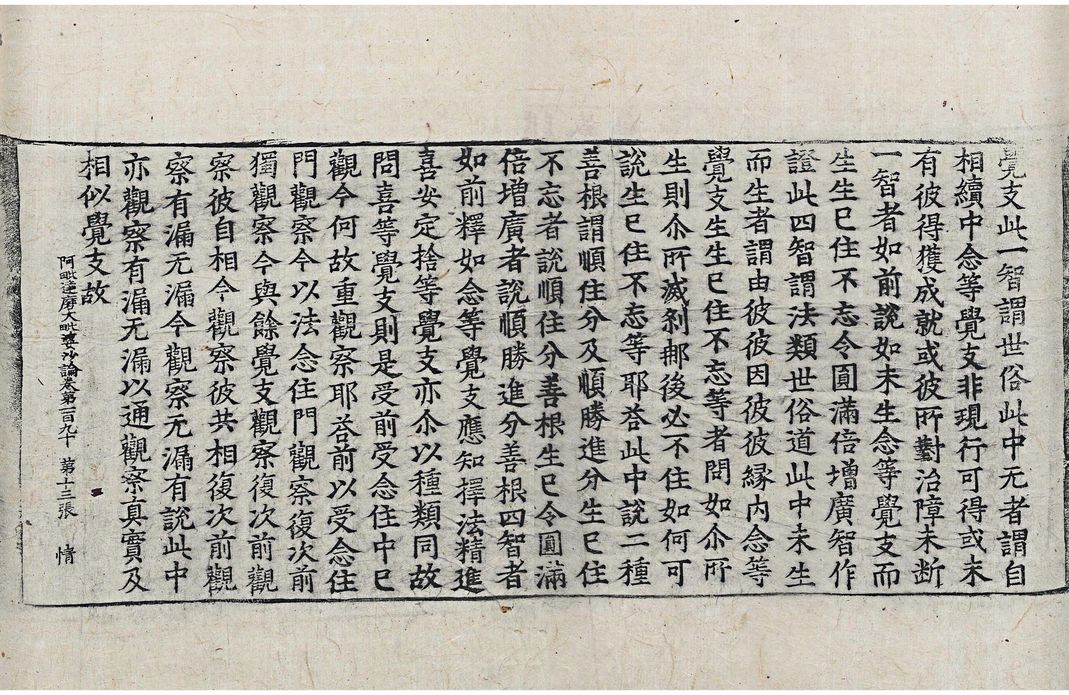 覺支此一智謂世俗此中无者謂自
相續中念等覺支非現行可得或未
有彼得獲成就或彼所對治障未断
一智者如前說如未生念等覺支而
生生已住不忘令圓滿倍增廣智作
證此四智謂法類世俗道此中未生
而生者謂由彼彼因彼彼緣內念等
覺支生生已住不忘等者問如尒所
生則尒所滅剎那後必不住如何可
說生已住不忘等耶荅此中說二種
善根謂順住分及順勝進分生已住
不忘者說順住分善根生已令圓滿
倍增廣者說順勝進分善根四智者
如前釋如念等覺支應知擇法精進
喜安定捨等覺支亦尒以種類同故
問喜等覺支則是受前受念住中已
觀今何故重觀察耶荅前以受念住
門觀察今以法念住門觀察復次前
獨觀察今與餘覺支觀察復次前觀
察彼自相今觀察彼共相復次前觀
察有漏无漏今觀察无漏有說此中
亦觀察有漏无漏以通觀察真實及
相似覺支故
阿毗達磨大毗婆沙論卷第一百九十 第十三張 情